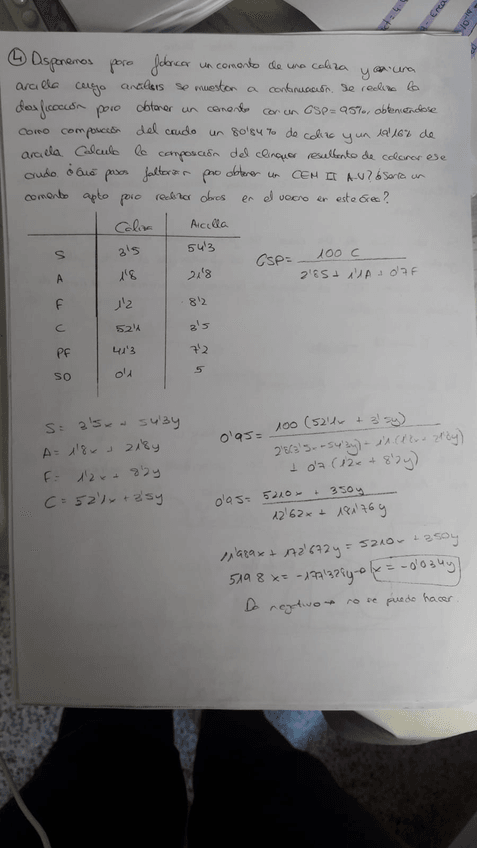 ④ Disponemos para fabricar un cemento de una caliza y de una
arcilla cuyo análisis se muestran a continuación. Se realiza la
dosificación para obtener un cemento con un GSP=95%, obteniéndose
como composición del crudo un 80'84% de caliza y un 19'16% de
arcilla. Calcula la composición del clinquer resultante de calcinar ese
crudo. ¿Qué pasos faltarían para obtener un CEM II A-V? ¿Sería un
cemento apto para realizar obras en el verano en este área?
Caliza Arcilla
S 3'5 54'3
A 1'8 21'8
F 1'2 8'2
C 52'1 3'5
PF 41'3 7'2
SO 0'1 5
GSP = 100 C
2'8S + 1'1A + 0'7F
S = 3'5x + 54'3y
A = 1'8x + 21'8y
F = 1'2x + 8'2y
C = 52'1x + 3'5y
0'95 = 100 (52'1x + 3'5y)
2'8(3'5x + 54'3y) + 1'1(1'8x + 21'8y)
+ 0'7 (1'2x + 8'2y)
0'95 = 5210x + 350y
12'62x + 181'76y
11'989x + 172'672y = 5210x + 350y
5198x = -177'328y → x = -0'034y
Da negativo → no se puede hacer.